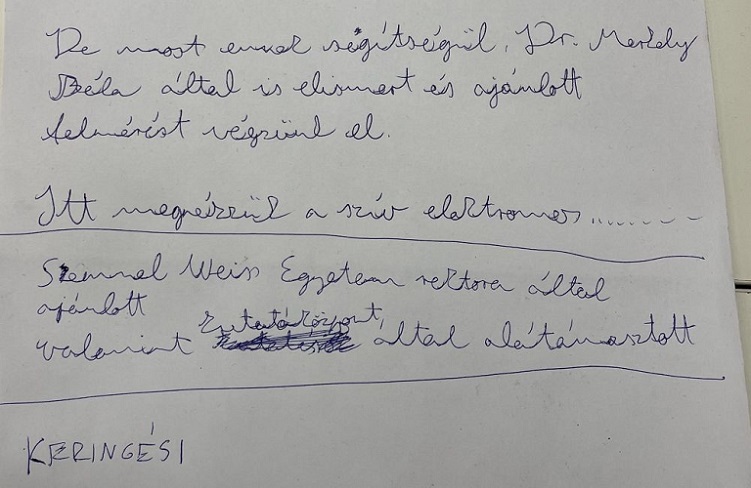 De most ennek segítségül, Dr. Merkely
Béla által is elismert és ajánlott
felmérést végzünk el.
Itt megnézzük a szív elektromos ........
Semmel Weiss Egyetem rektora által
ajánlott
valamint kutatóközpont által alátámasztott
KERINGÉSI